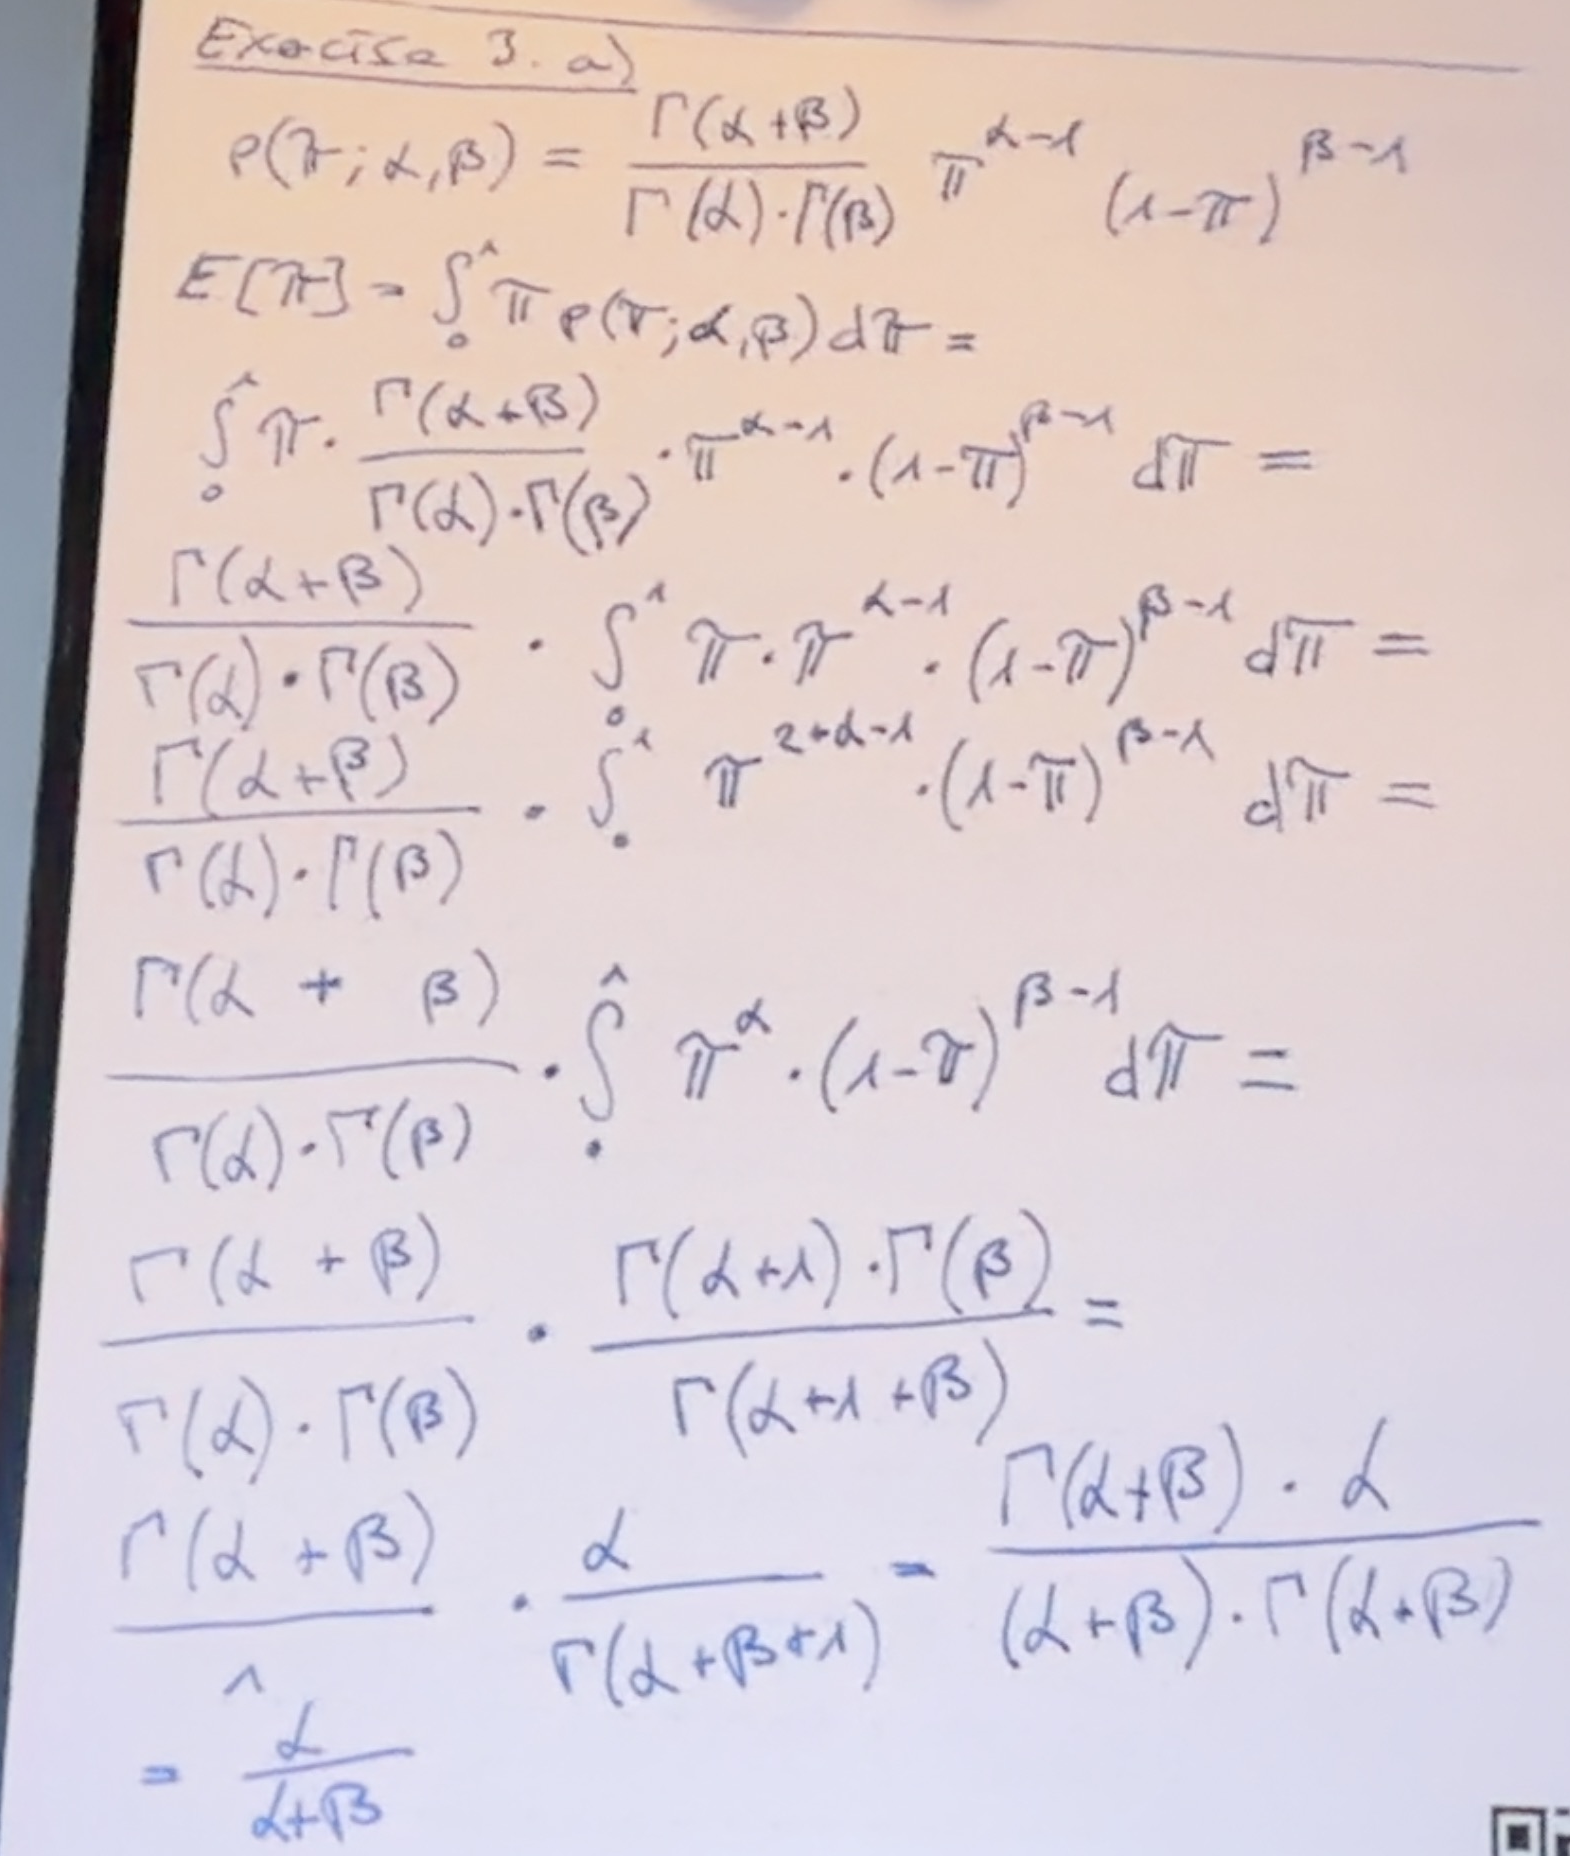 Exercise 3. a)
p(π; α, β) = Γ(α+β) / Γ(α)·Γ(β) π^(α-1) (1-π)^(β-1)
E[π] = ∫₀¹ π p(π; α, β) dπ =
∫₀¹ π · Γ(α+β) / Γ(α)·Γ(β) · π^(α-1) · (1-π)^(β-1) dπ =
Γ(α+β) / Γ(α)·Γ(β) · ∫₀¹ π · π^(α-1) · (1-π)^(β-1) dπ =
Γ(α+β) / Γ(α)·Γ(β) · ∫₀¹ π^(2+α-1) · (1-π)^(β-1) dπ =
Γ(α + β) / Γ(α)·Γ(β) · ∫₀¹ π^α · (1-π)^(β-1) dπ =
Γ(α + β) / Γ(α)·Γ(β) · Γ(α+1)·Γ(β) / Γ(α+1+β) =
Γ(α+β) / 1 · α / Γ(α+β+1) = Γ(α+β)·α / (α+β)·Γ(α+β)
= α / α+β